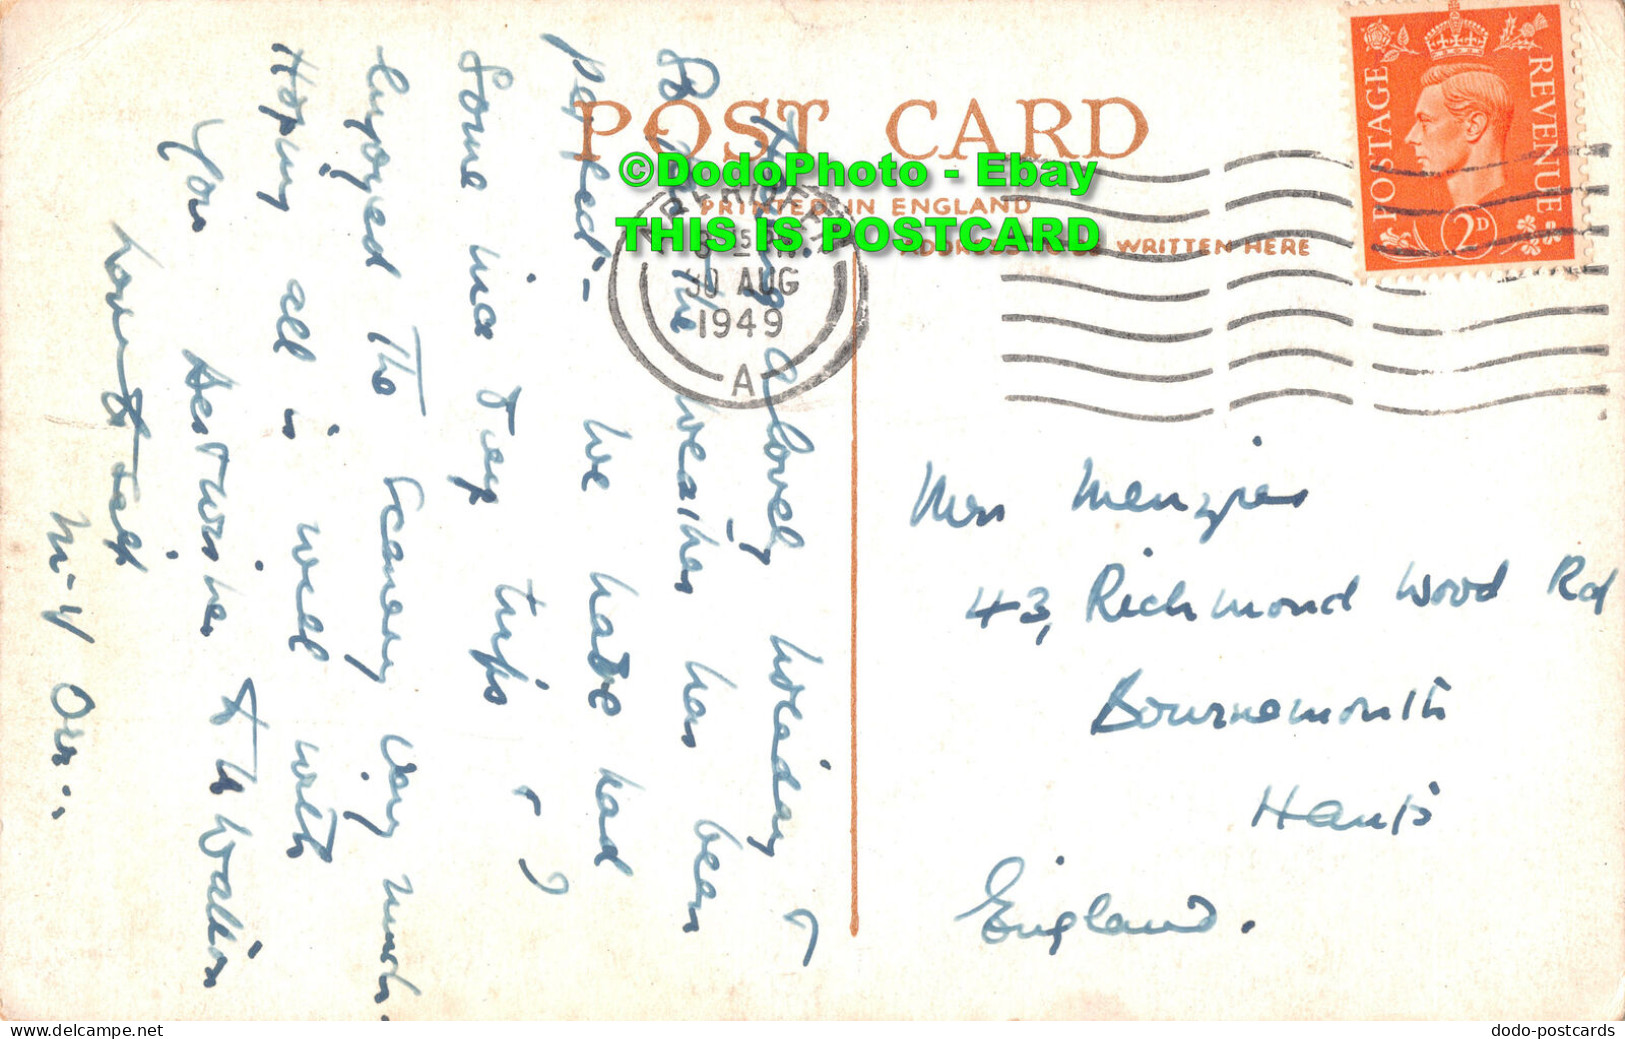 POST CARD
©DodoPhoto - Ebay
PRINTED IN ENGLAND
THIS IS POSTCARD
WRITTEN HERE
30 AUG
1949
A
POSTAGE
REVENUE
2D
Having a lovely holiday &
so far the weather has been
perfect - We have had
Some nice Day trips & I
enjoyed the scenery very much.
Hoping all is well with
You
Love to
Orr
Mrs Menzies
43, Richmond Wood Rd
Bournemouth
Hants
England.
www.delcampe.net
dodo-postcards